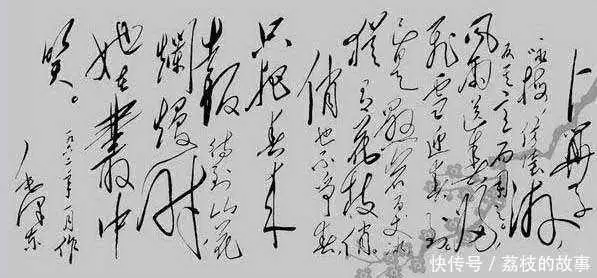 卜算子
咏梅
反其意而用之。
風雨送春归
飛雪迎春到
已是懸崖百丈冰
猶有花枝俏
俏也不争春
只把春来
報 待到山花
爛熳时
她在叢中
笑。
一九六二年一月作
毛泽东
快传号 / 荔枝的故事